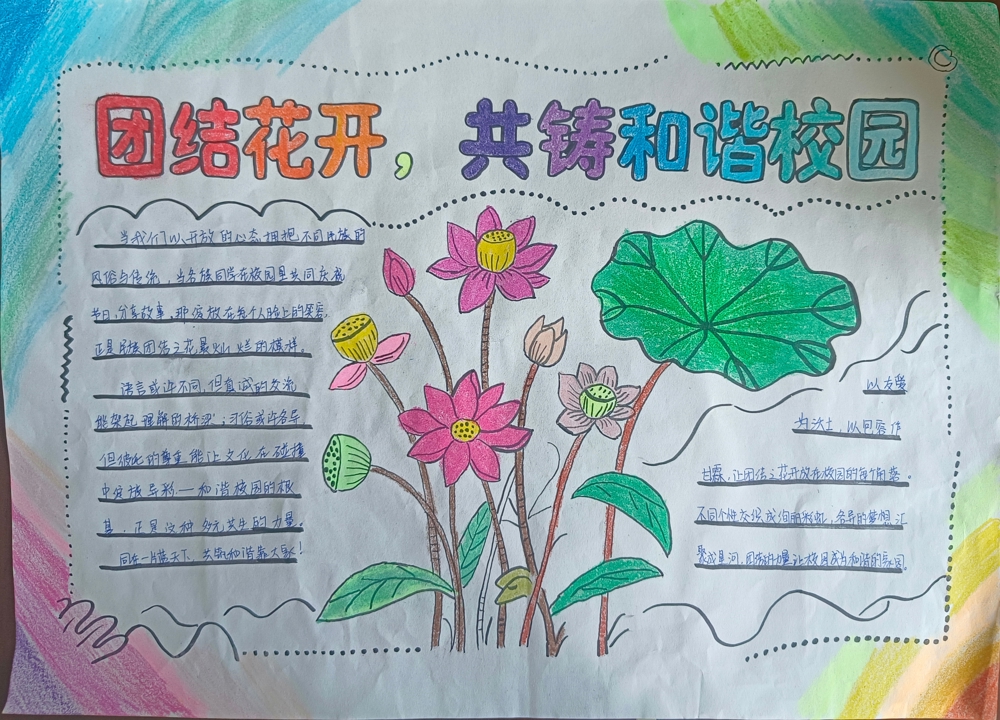 团结花开，共铸和谐校园
当我们以开放的心态拥抱不同民族的
风俗与传统，当各族同学在校园里共同庆祝
节日、分享故事，那绽放在每个人脸上的笑容，
正是民族团结之花最灿烂的模样。
语言或许不同，但真诚的交流
能架起理解的桥梁；习俗或许各异，
但彼此的尊重能让文化在碰撞
中绽放异彩——和谐校园的根
基，正是这种多元共生的力量。
同在一片蓝天下，共筑和谐靠大家！
以友爱
为沃土，以包容作
甘霖，让团结之花开放在校园的每个角落。
不同个性交织成绚丽彩虹，各异的梦想汇
聚成星河，团结的力量让校园成为和谐的乐园。